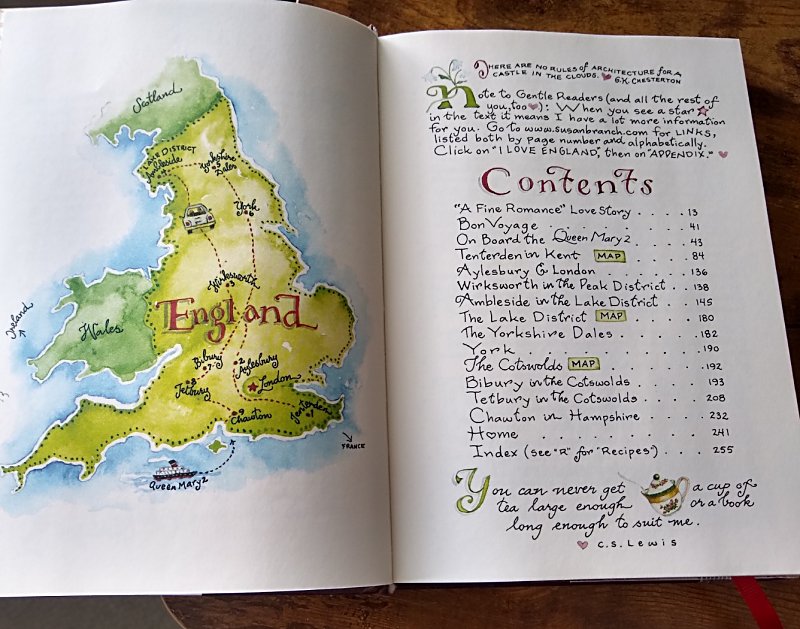 Scotland
LAKE DISTRICT
Ambleside
4
Yorkshire
5
Dales
York
6
Wirksworth
3
England
Wales
Ireland
Bibury
7
2
Aylesbury
8
Tetbury
London
Tenterden
1
9
Chawton
FRANCE
Queen Mary 2
THERE ARE NO RULES of ARCHITECTURE for A
CASTLE IN THE CLOUDS. ♥ G.K. CHESTERTON
Note to Gentle Readers (and all the rest of
you, too ♥): When you see a star ☆
in the text it means I have a lot more information
for you. Go to www.susanbranch.com for LINKS,
listed both by page number and alphabetically.
Click on "I LOVE ENGLAND," then on "APPENDIX." ♥
Contents
"A Fine Romance" Love Story . . . . 13
Bon Voyage . . . . . . 41
On Board the Queen Mary 2 . . . . 43
Tenterden in Kent MAP . . . . 84
Aylesbury & London . . . . . 136
Wirksworth in the Peak District . . 138
Ambleside in the Lake District . . . 145
The Lake District MAP . . . . 180
The Yorkshire Dales . . . . . 182
York . . . . . . . 190
The Cotswolds MAP . . . . . 192
Bibury in the Cotswolds . . . . 193
Tetbury in the Cotswolds . . . . 208
Chawton in Hampshire . . . . 232
Home . . . . . . . 241
Index (see "R" for "Recipes") . . . 255
You can never get a cup of
tea large enough or a book
long enough to suit me.
♥ C.S. Lewis